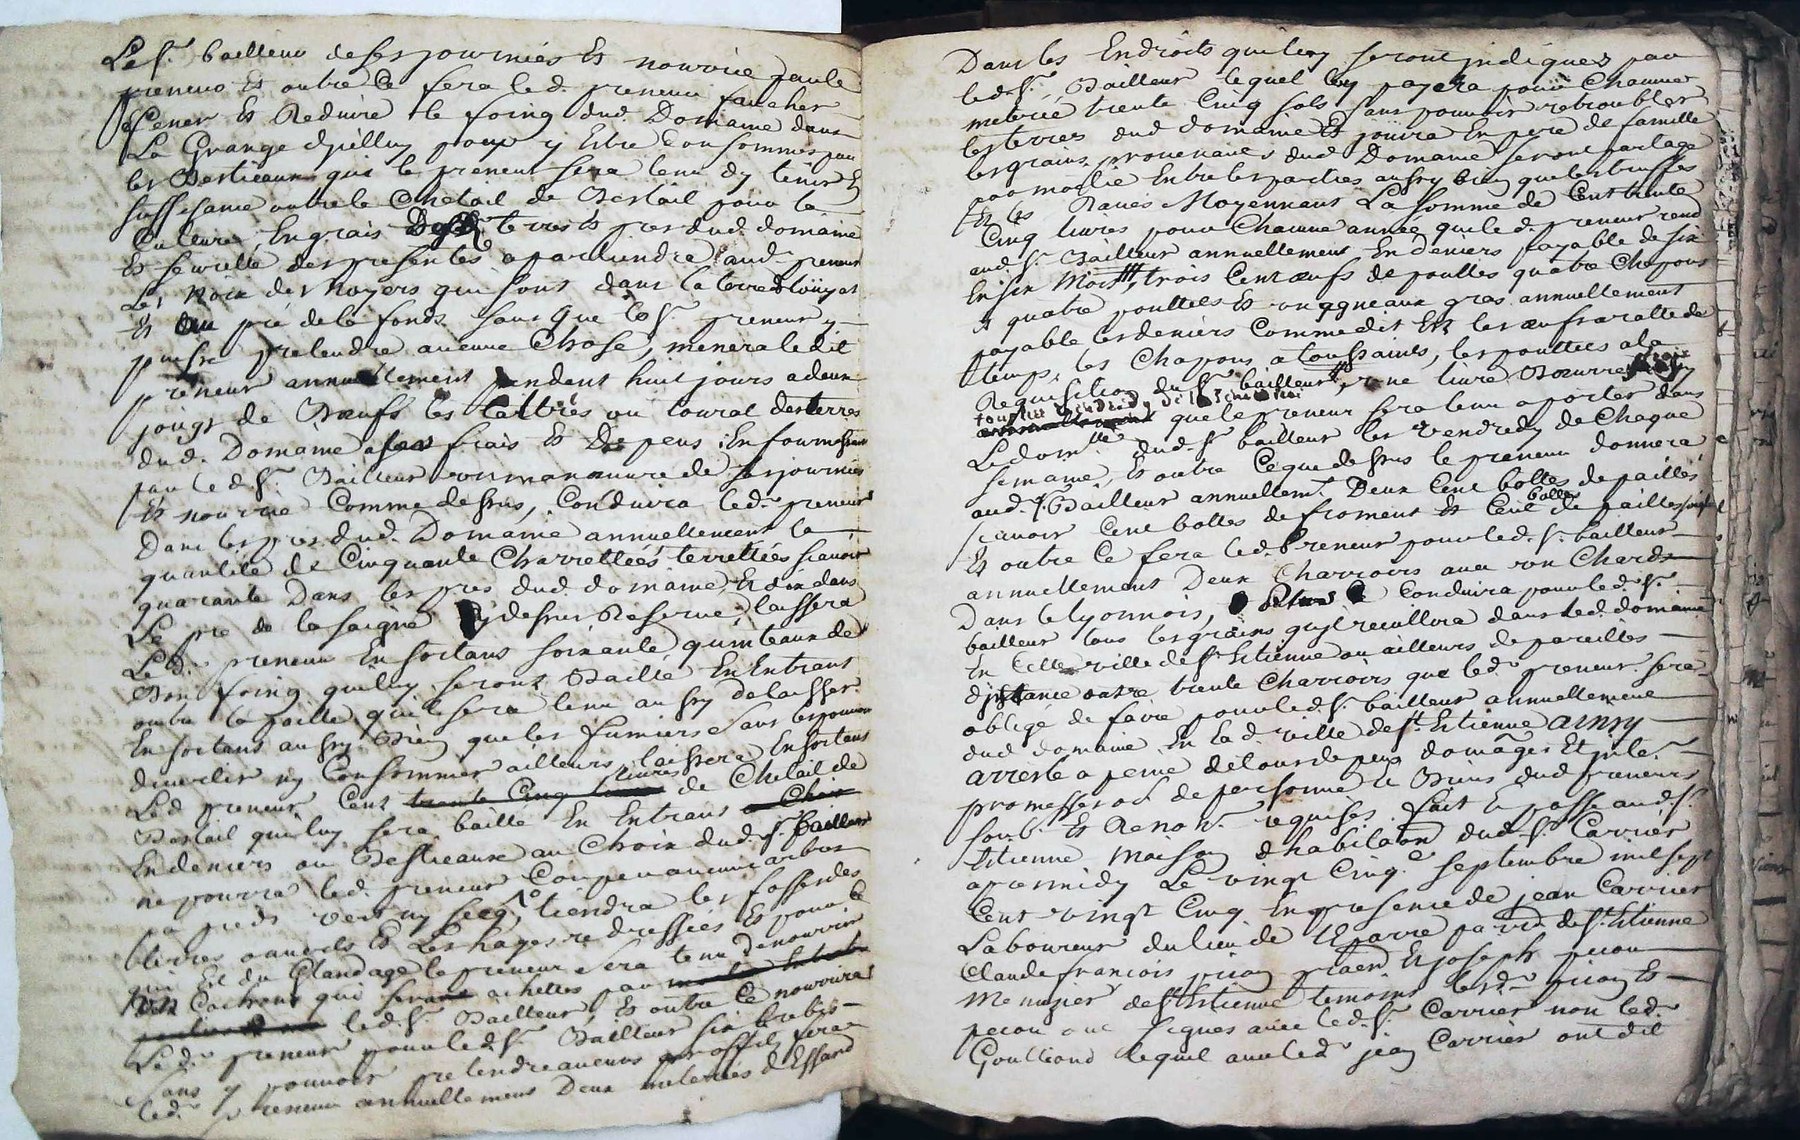 Le Sr. bailleur de ses journiés Et nourrie par le
preneur Et outre Ce fera led. preneur faucher
fener Et Reduire le foing dud. Domaine dans
La Grange pour y Estre Consommes par
les Bestieaux que le preneur sera tenu dy tenir En
suffisance outre le Chetail de Bestail pour la
Culture, Engrais terres Et pres dud. domaine
Et sewrelle des presentes apartiendra aud. preneur
Les Noix des Noyers qui sont dans la terre
Et pré de la fonds sans que le Sr. preneur y
puisse pretendre aucune Chose, menera ledit
preneur annuellement pendent huit jours a deux
jougs de Bœufs les au toural des terres
dud. Domaine a ses frais Et De pens, En fournissant
par led. Sr. Bailleur un manœuvre de ses journiés
Et nourrie Comme dessus, Conduira led. preneur
Dans les pres dud. Domaine annuellement la
quantité de Cinquante Charrettées terrettées scavoir
quarante Dans les pres dud. domaine, Et dix dans
Le pre de la saigne cy dessus Reservé, laissera
Led. preneur En sortant soixante quinteaux de
Bon foing quil luy seront Baillé En Entrant
outre la paille quil sera tenu aussy de laisser
En sortant aussy Bien que les fumiers sans les pouvoir
divertir ny Consommer ailleurs, laissera En sortant
Led. preneur Cent trente Cinq livres livres de Chetail de
Bestail qui luy sera baillé En Entrant a Choix
En deniers ou Bestieaux au Choix dud. Sr. Bailleur
ne pourra led. preneur Couper aucuns arbres
par pieds vert ny secq, tiendra les fosses des
terres ouverts Et Les hayes redressiés Et pour ce
qui Est du Glandage le preneur sera tenu de nourrir
Cochons qui seront achettes par moitié Entre
led. Sr. Bailleur, Et outre Ce nourrira
Led. preneur pour led. Sr. Bailleur six brebis
sans y pouvoir pretendre aucuns proffits fera
led. preneur annuellement Deux
Dans les Endroits qui luy seront indiqués par
led. Sr. Bailleur lequel luy payera pour Chacune
trente Cinq sols sans pouvoir retroubler
les terres dud domaine Et jouira En pere de famille
les grains provenants dud Domaine seront partagé
par moitié Entre les parties aussy bien que les truffes
Et les Raves Moyennant La somme de Cent trente
Cinq livres pour Chacune année que led. preneur rend
aud. Sr. Bailleur annuellement En deniers payable de six
En six Mois, trois Cent œufs de poulles quatre Chapons
quatre poullets Et un agneaux gras annuellement
payable les deniers Comme dit Est les œufs a ratte de
temps, les Chapons a toussaints, les poullets a la
Requisition du Sr. bailleur, une livre Beurre
tous les Vendredy de la semaine
annuellement que le preneur sera tenu a porter dans
Le domlle. dud. Sr. bailleur les Vendredy de Chaque
semaine, Et outre Ce que dessus le preneur donnera
aud. Sr. Bailleur annuellemt. Deux Cent bottes de paillés
scavoir Cent bottes de froment Et Cent bottes de paille
Et outre Ce fera led. Preneur pour led. Sr. bailleur
annuellement Deux Charroirs avec son Chards
Dans le lyonnois, Conduira pour led. Sr.
bailleur tous les grains quil recuillera dans led. domaine
En Cette ville de St Etienne ou ailleurs de pareilles
distance outre trente Charroirs que led. preneur sera
obligé de faire pour led. Sr. bailleur annuellement
dud domaine En Lad. ville de St. Etienne ainsy
arresté a peine de tous depens domages Et Inte.
promesses de personne Et Biens dud preneur
soub. Et Renon. requises. fait Et passé aud. St.
Etienne Maison dhabitaon dud. Sr. Carrier
apres midy Le vingt Cinqe. septembre mil sept
Cent vingt Cinq En presence de jean Carrier
Laboureur du lieu de paroisse de St. Etienne
Claude francois Et joseph
Menuzier de St Etienne temoins lesd. Et
ont signes avec led. Sr. Carrier non led.
lequel avec led. jean Carrier ont dit